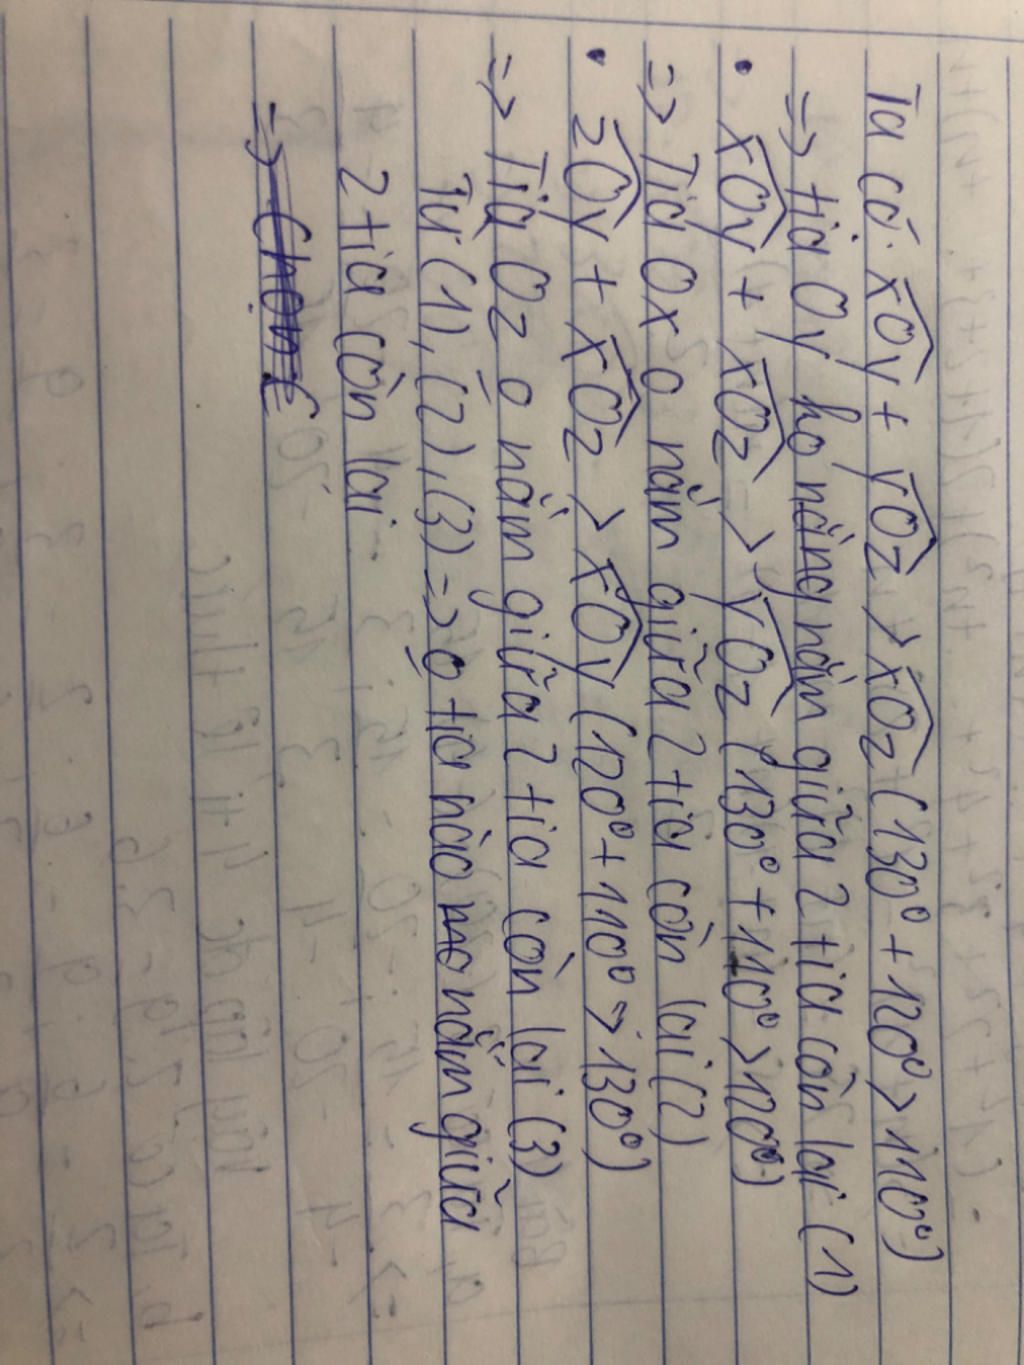 Ta có: xOy + yOz > xOz (130° + 120° > 110°)
=> tia Oy ho năng nằm giữa 2 tia còn lại (1)
• xOy + xOz > yOz (130° + 110° > 120°)
=> Tia Ox o nằm giữa 2 tia còn lại (2)
• zOy + xOz > xOy (120° + 110° > 130°)
=> Tia Oz o nằm giữa 2 tia còn lại (3)
Từ (1), (2), (3) => o tia nào nằm giữa
2 tia còn lại.
=>